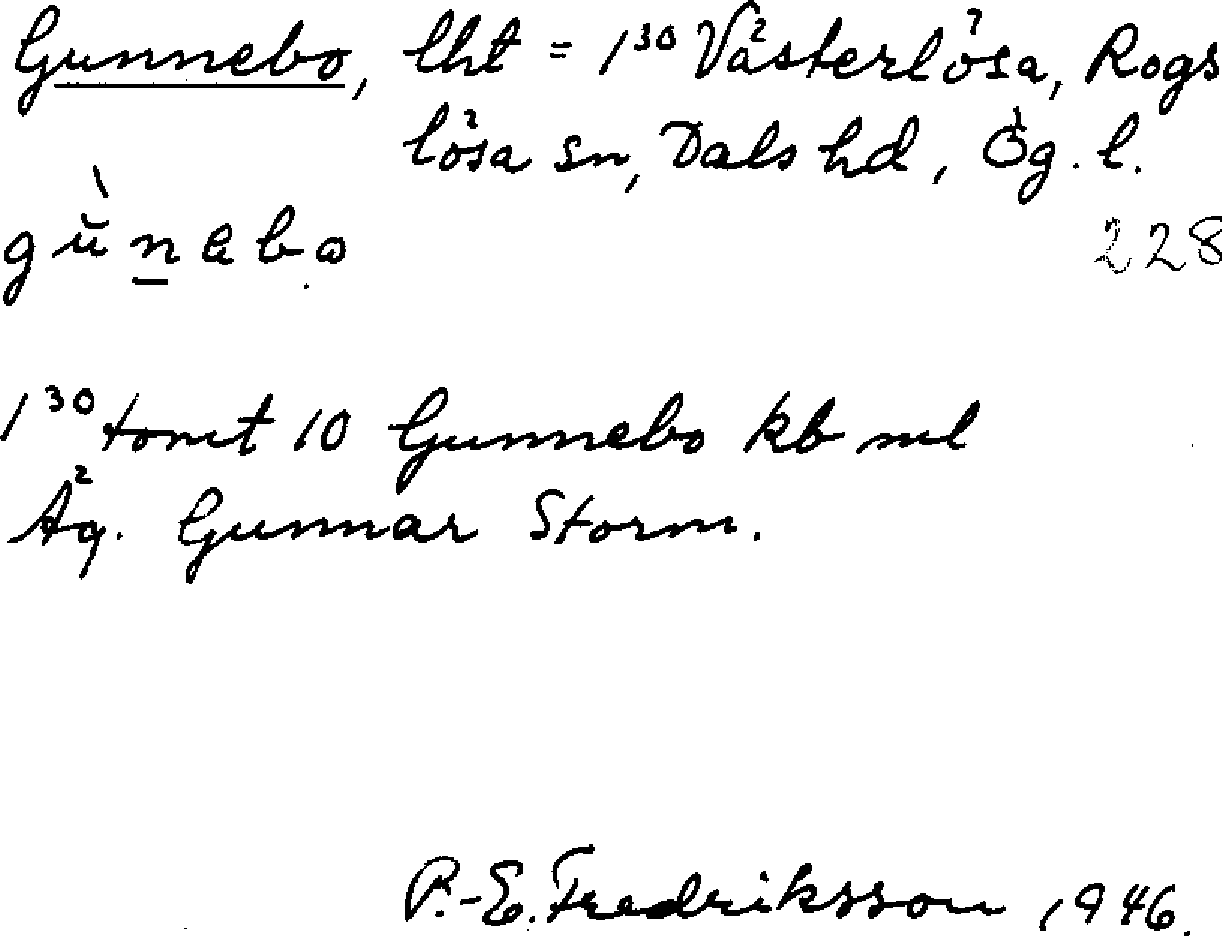 Gunnebo, lht = 1³⁰ Västerlösa, Rogs
lösa sn, Dals hd, Ög. l.
gùnebo 228
1³⁰ tomt 10 Gunnebo kb ml
Äg. Gunnar Storm.
P.-E. Fredriksson 1946.